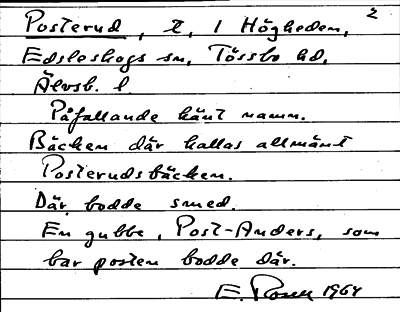 2
Posterud, t, 1 Högheden,
Edsleskogs sn, Tössbo hd,
Älvsb. l.
Påfallande känt namn.
Bäcken där kallas allmänt
Posterudsbäcken.
Där bodde smed.
En gubbe, Post-Anders, som
bar posten bodde där.
E. 1964